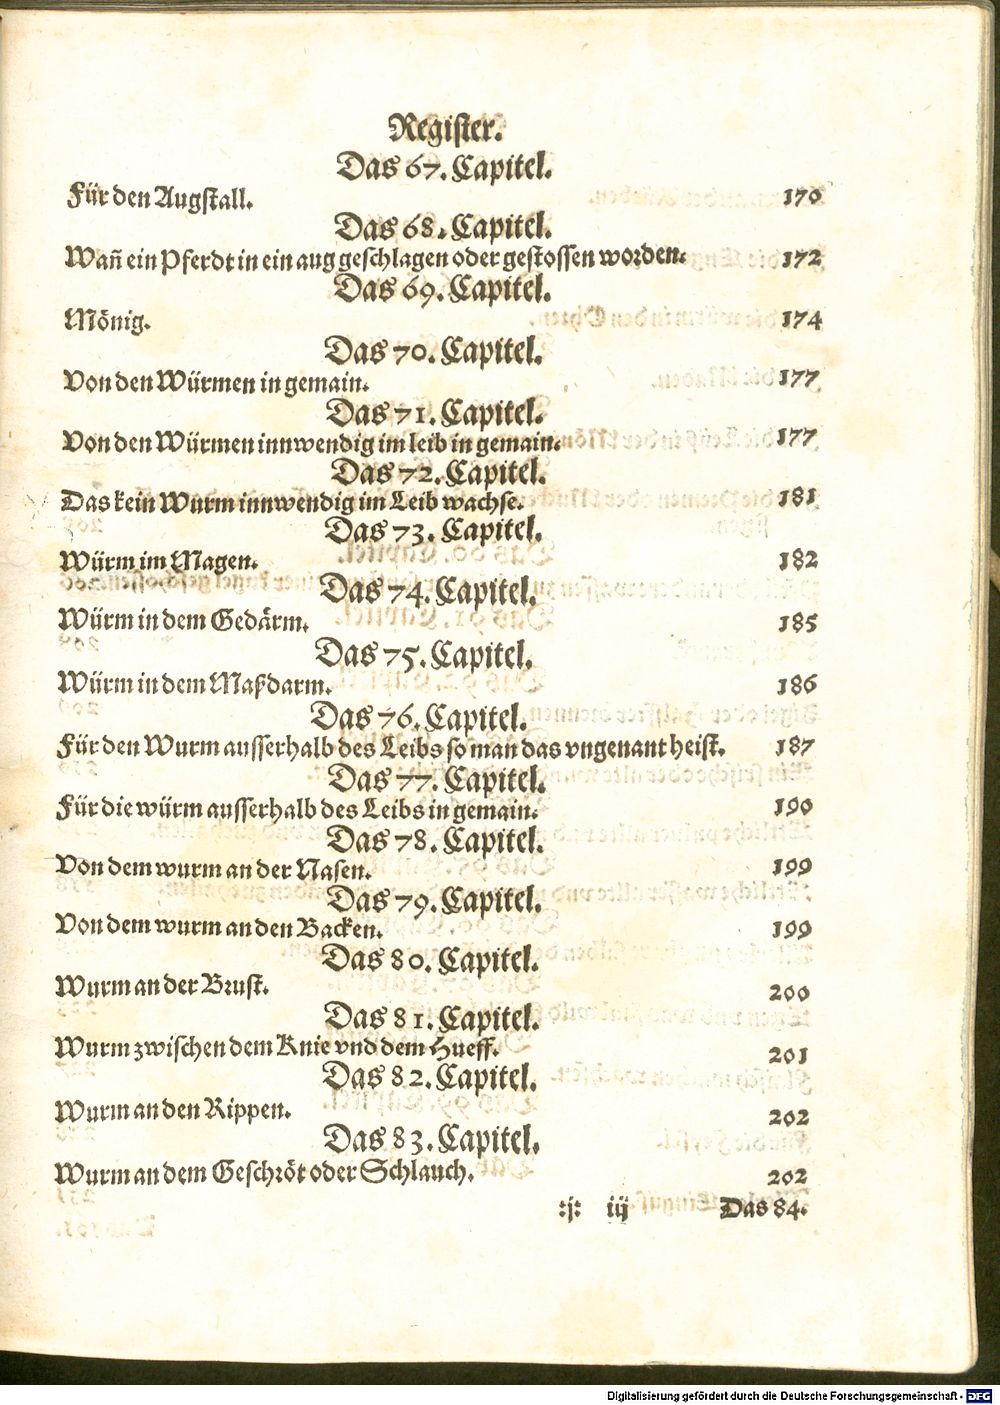 Register.
Das 67. Capitel.
Für den Augstall. 170
Das 68. Capitel.
Wañ ein Pferdt in ein aug geschlagen oder gestossen worden. 172
Das 69. Capitel.
Mönig. 174
Das 70. Capitel.
Von den Würmen in gemain. 177
Das 71. Capitel.
Von den Würmen innwendig im leib in gemain. 177
Das 72. Capitel.
Das kein Wurm innwendig im Leib wachse. 181
Das 73. Capitel.
Würm im Magen. 182
Das 74. Capitel.
Würm in dem Gedärm. 185
Das 75. Capitel.
Würm in dem Maßdarm. 186
Das 76. Capitel.
Für den Wurm ausserhalb des Leibs so man das vngenant heist. 187
Das 77. Capitel.
Für die würm ausserhalb des Leibs in gemain. 190
Das 78. Capitel.
Von dem wurm an der Nasen. 199
Das 79. Capitel.
Von dem wurm an den Backen. 199
Das 80. Capitel.
Wurm an der Brust. 200
Das 81. Capitel.
Wurm zwischen dem Knie vnd dem Hueff. 201
Das 82. Capitel.
Wurm an den Rippen. 202
Das 83. Capitel.
Wurm an dem Geschröt oder Schlauch. 202
:j: iij Das 84.
Digitalisierung gefördert durch die Deutsche Forschungsgemeinschaft - DFG